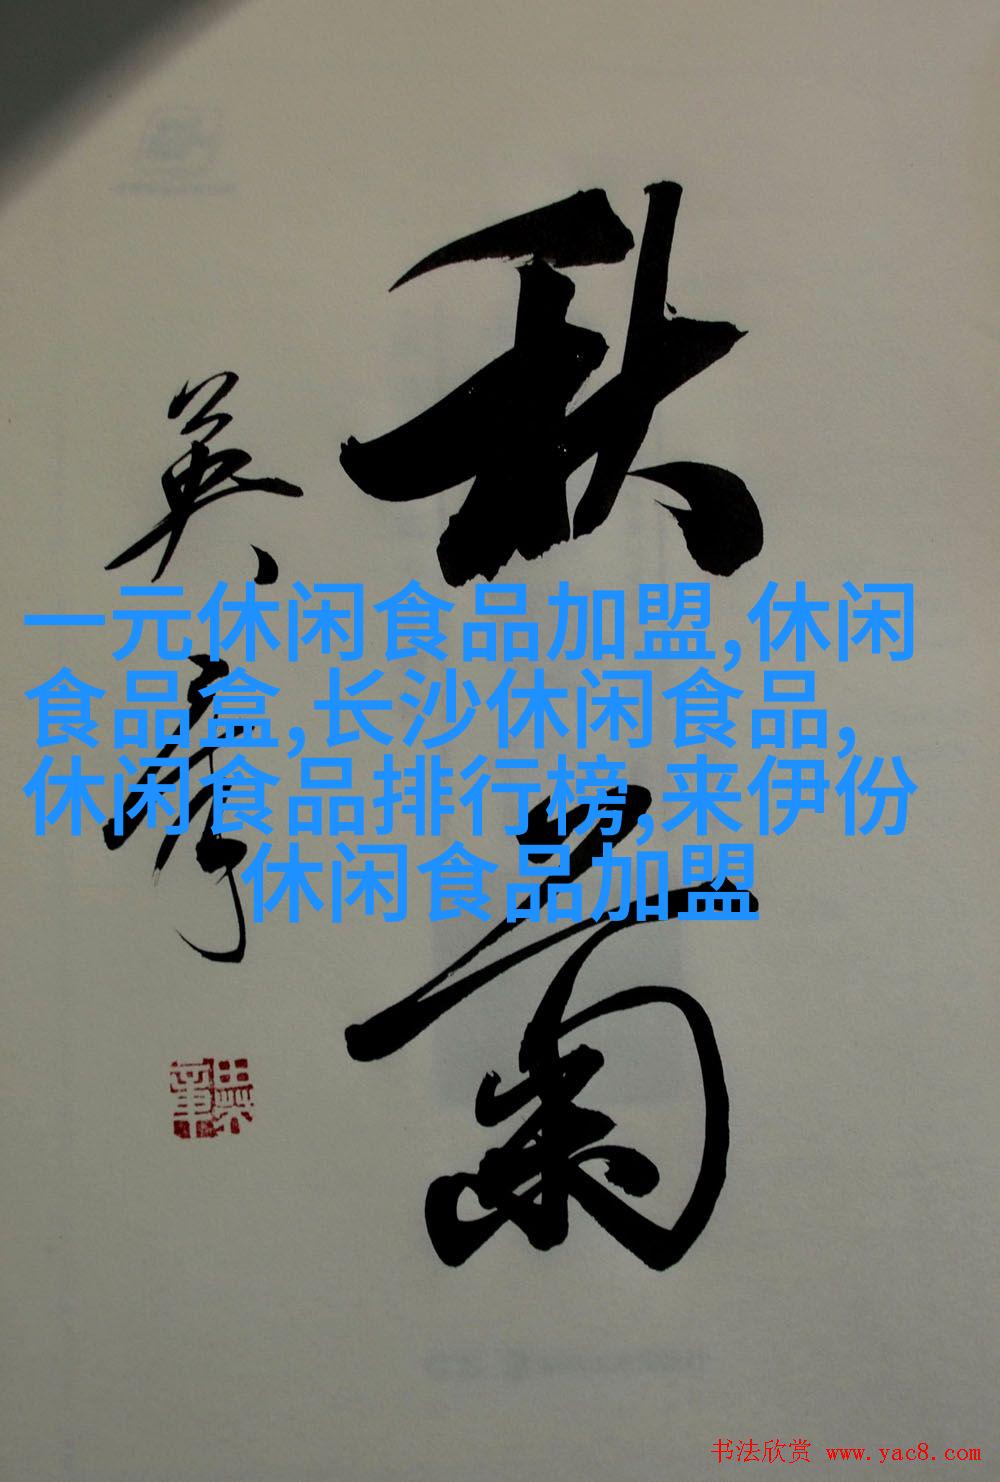 秋菊
英章
一元休闲食品加盟,休闲
食品盒,长沙休闲食品,
休闲食品排行榜,来伊份
休闲食品加盟
书法欣赏 www.yac8.com